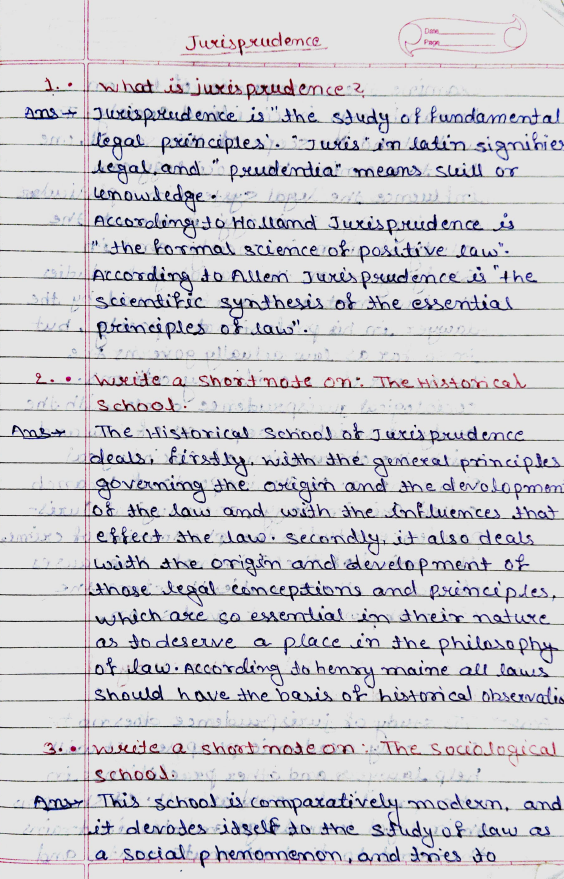 Jurisprudence
Date
Page
1. • What is jurisprudence?
Ans → Jurisprudence is "the study of fundamental
legal principles'. "Juris" in latin signifies
legal, and "prudentia" means skill or
knowledge.
According to Holland Jurisprudence is
"the formal science of positive law".
According to Allen Jurisprudence is "the
scientific synthesis of the essential
principles of law".
2. • Write a short note on: The Historical
School.
Ans → The Historical School of Jurisprudence
deals, firstly, with the general principles
governing the origin and the devolopmen
of the law and with the influences that
effect the law. secondly, it also deals
with the origin and development of
those legal conceptions and principles,
which are so essential in their nature
as to deserve a place in the philosophy
of law. According to henry maine all laws
should have the basis of historical observatio
3. • Write a short note on: The sociological
school.
Ans → This school is comparatively modern, and
it devotes itself to the study of law as
a social phenomenon, and tries to